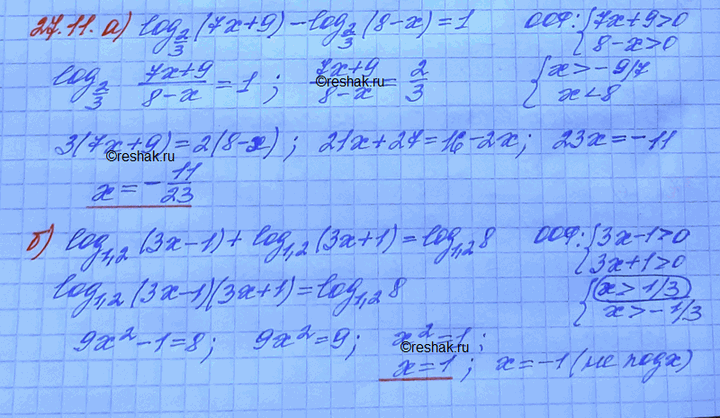 27.11. а) log_{2/3}(7x+9) - log_{2/3}(8-x) = 1 ООФ: {7x+9>0
8-x>0
log_{2/3} (7x+9)/(8-x) = 1; (7x+9)/(8-x) = 2/3 {x>-9/7
x<8
©reshak.ru
3(7x+9) = 2(8-x); 21x+27 = 16-2x; 23x = -11
©reshak.ru
x = -11/23
б) log_{1,2}(3x-1) + log_{1,2}(3x+1) = log_{1,2}8 ООФ: {3x-1>0
3x+1>0
log_{1,2}(3x-1)(3x+1) = log_{1,2}8 {x>1/3
x>-1/3
9x²-1=8; 9x²=9; x²=1;
©reshak.ru
x=1; x=-1 (не подх)